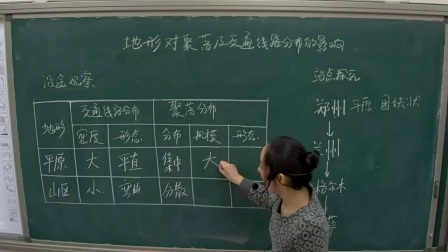 地形对聚落及交通线路分布的影响
沿途观察
站点探究
地形 交通线路分布 聚落分布
密度 形态 分布 规模 形态
平原 大 平直 集中 大
山区 小 弯曲 分散
郑州 平原 团块状
兰州
格尔木